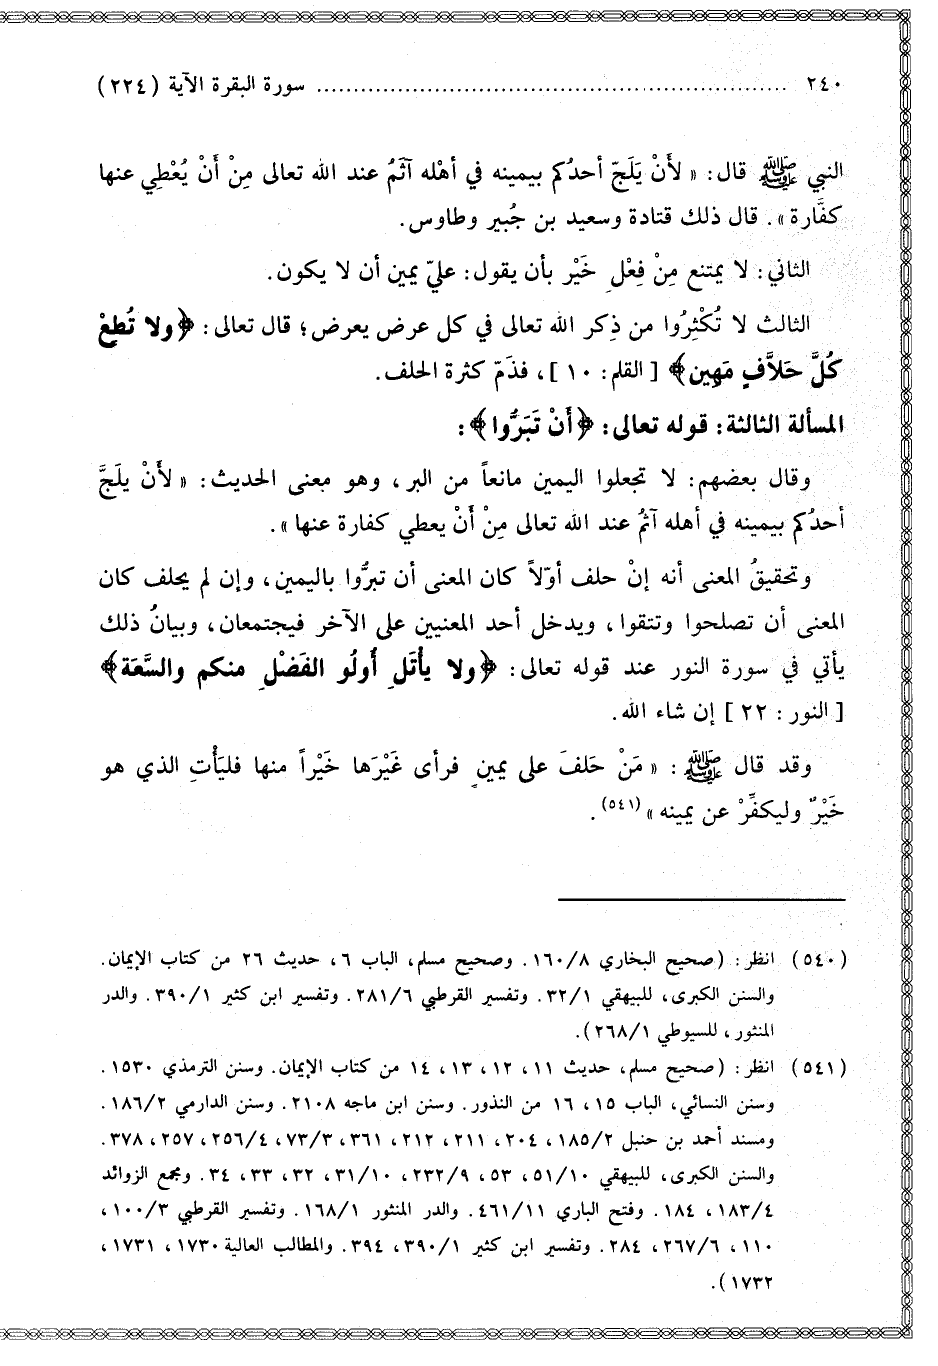 ٢٤٠ ........................................................ سورة البقرة الآية (٢٢٤)
النبي ﷺ قال: « لأَنْ يَلَجّ أحدُكم بيمينه في أهْله آثَمُ عند الله تعالى مِنْ أَنْ يُعْطِي عنها
كفَّارة ». قال ذلك قتادة وسعيد بن جُبير وطاوس.
الثاني: لا يمتنع مِنْ فِعْلِ خَيْر بأن يقول: عليّ يمين أن لا يكون.
الثالث لا تُكْثِرُوا من ذِكر الله تعالى في كل عرض يعرض؛ قال تعالى: ﴿ولا تُطِعْ
كُلَّ حَلاَّفٍ مَهِين﴾ [ القلم: ١٠ ]، فذَمّ كثرة الحلف.
المسألة الثالثة: قوله تعالى: ﴿أَنْ تَبَرُّوا﴾:
وقال بعضهم: لا تجعلوا اليمين مانعاً من البر، وهو معنى الحديث: « لأَنْ يلَجَّ
أحدُكم بيمينه في أهله آثمُ عند الله تعالى مِنْ أَنْ يعطي كفارة عنها ».
وتحقيقُ المعنى أنه إنْ حلف أوّلاً كان المعنى أن تبرُّوا باليمين، وإن لم يحلف كان
المعنى أن تصلحوا وتتقوا، ويدخل أحد المعنيين على الآخر فيجتمعان، وبيانُ ذلك
يأتي في سورة النور عند قوله تعالى: ﴿ولا يأْتَلِ أُولُو الفَضْلِ منكم والسَّعَة﴾
[ النور: ٢٢ ] إن شاء الله.
وقد قال ﷺ: « مَنْ حَلفَ على يمينٍ فرأى غَيْرَها خَيْراً منها فليَأْتِ الذي هو
خَيْرٌ وليكفِّرْ عن يمينه »(٥٤١).
(٥٤٠) انظر: (صحيح البخاري ١٦٠/٨. وصحيح مسلم، الباب ٦، حديث ٢٦ من كتاب الإيمان.
والسنن الكبرى، للبيهقي ٣٢/١. وتفسير القرطبي ٢٨١/٦. وتفسير ابن كثير ٣٩٠/١. والدر
المنثور، للسيوطي ٢٦٨/١).
(٥٤١) انظر: (صحيح مسلم، حديث ١١، ١٢، ١٣، ١٤ من كتاب الإيمان. وسنن الترمذي ١٥٣٠.
وسنن النسائي، الباب ١٥، ١٦ من النذور. وسنن ابن ماجه ٢١٠٨. وسنن الدارمي ١٨٦/٢.
ومسند أحمد بن حنبل ١٨٥/٢، ٢٠٤، ٢١١، ٢١٢، ٣٦١، ٧٣/٣، ٢٥٦/٤، ٢٥٧، ٣٧٨.
والسنن الكبرى، للبيهقي ٥١/١٠، ٥٣، ٢٣٢/٩، ٣١/١٠، ٣٢، ٣٣، ٣٤. ومجمع الزوائد
١٨٣/٤، ١٨٤. وفتح الباري ٤٦١/١١. والدر المنثور ١٦٨/١. وتفسير القرطبي ١٠٠/٣،
١١٠، ٢٦٧/٦، ٢٨٤. وتفسير ابن كثير ٣٩٠/١، ٣٩٤. والمطالب العالية ١٧٣٠، ١٧٣١،
١٧٣٢).